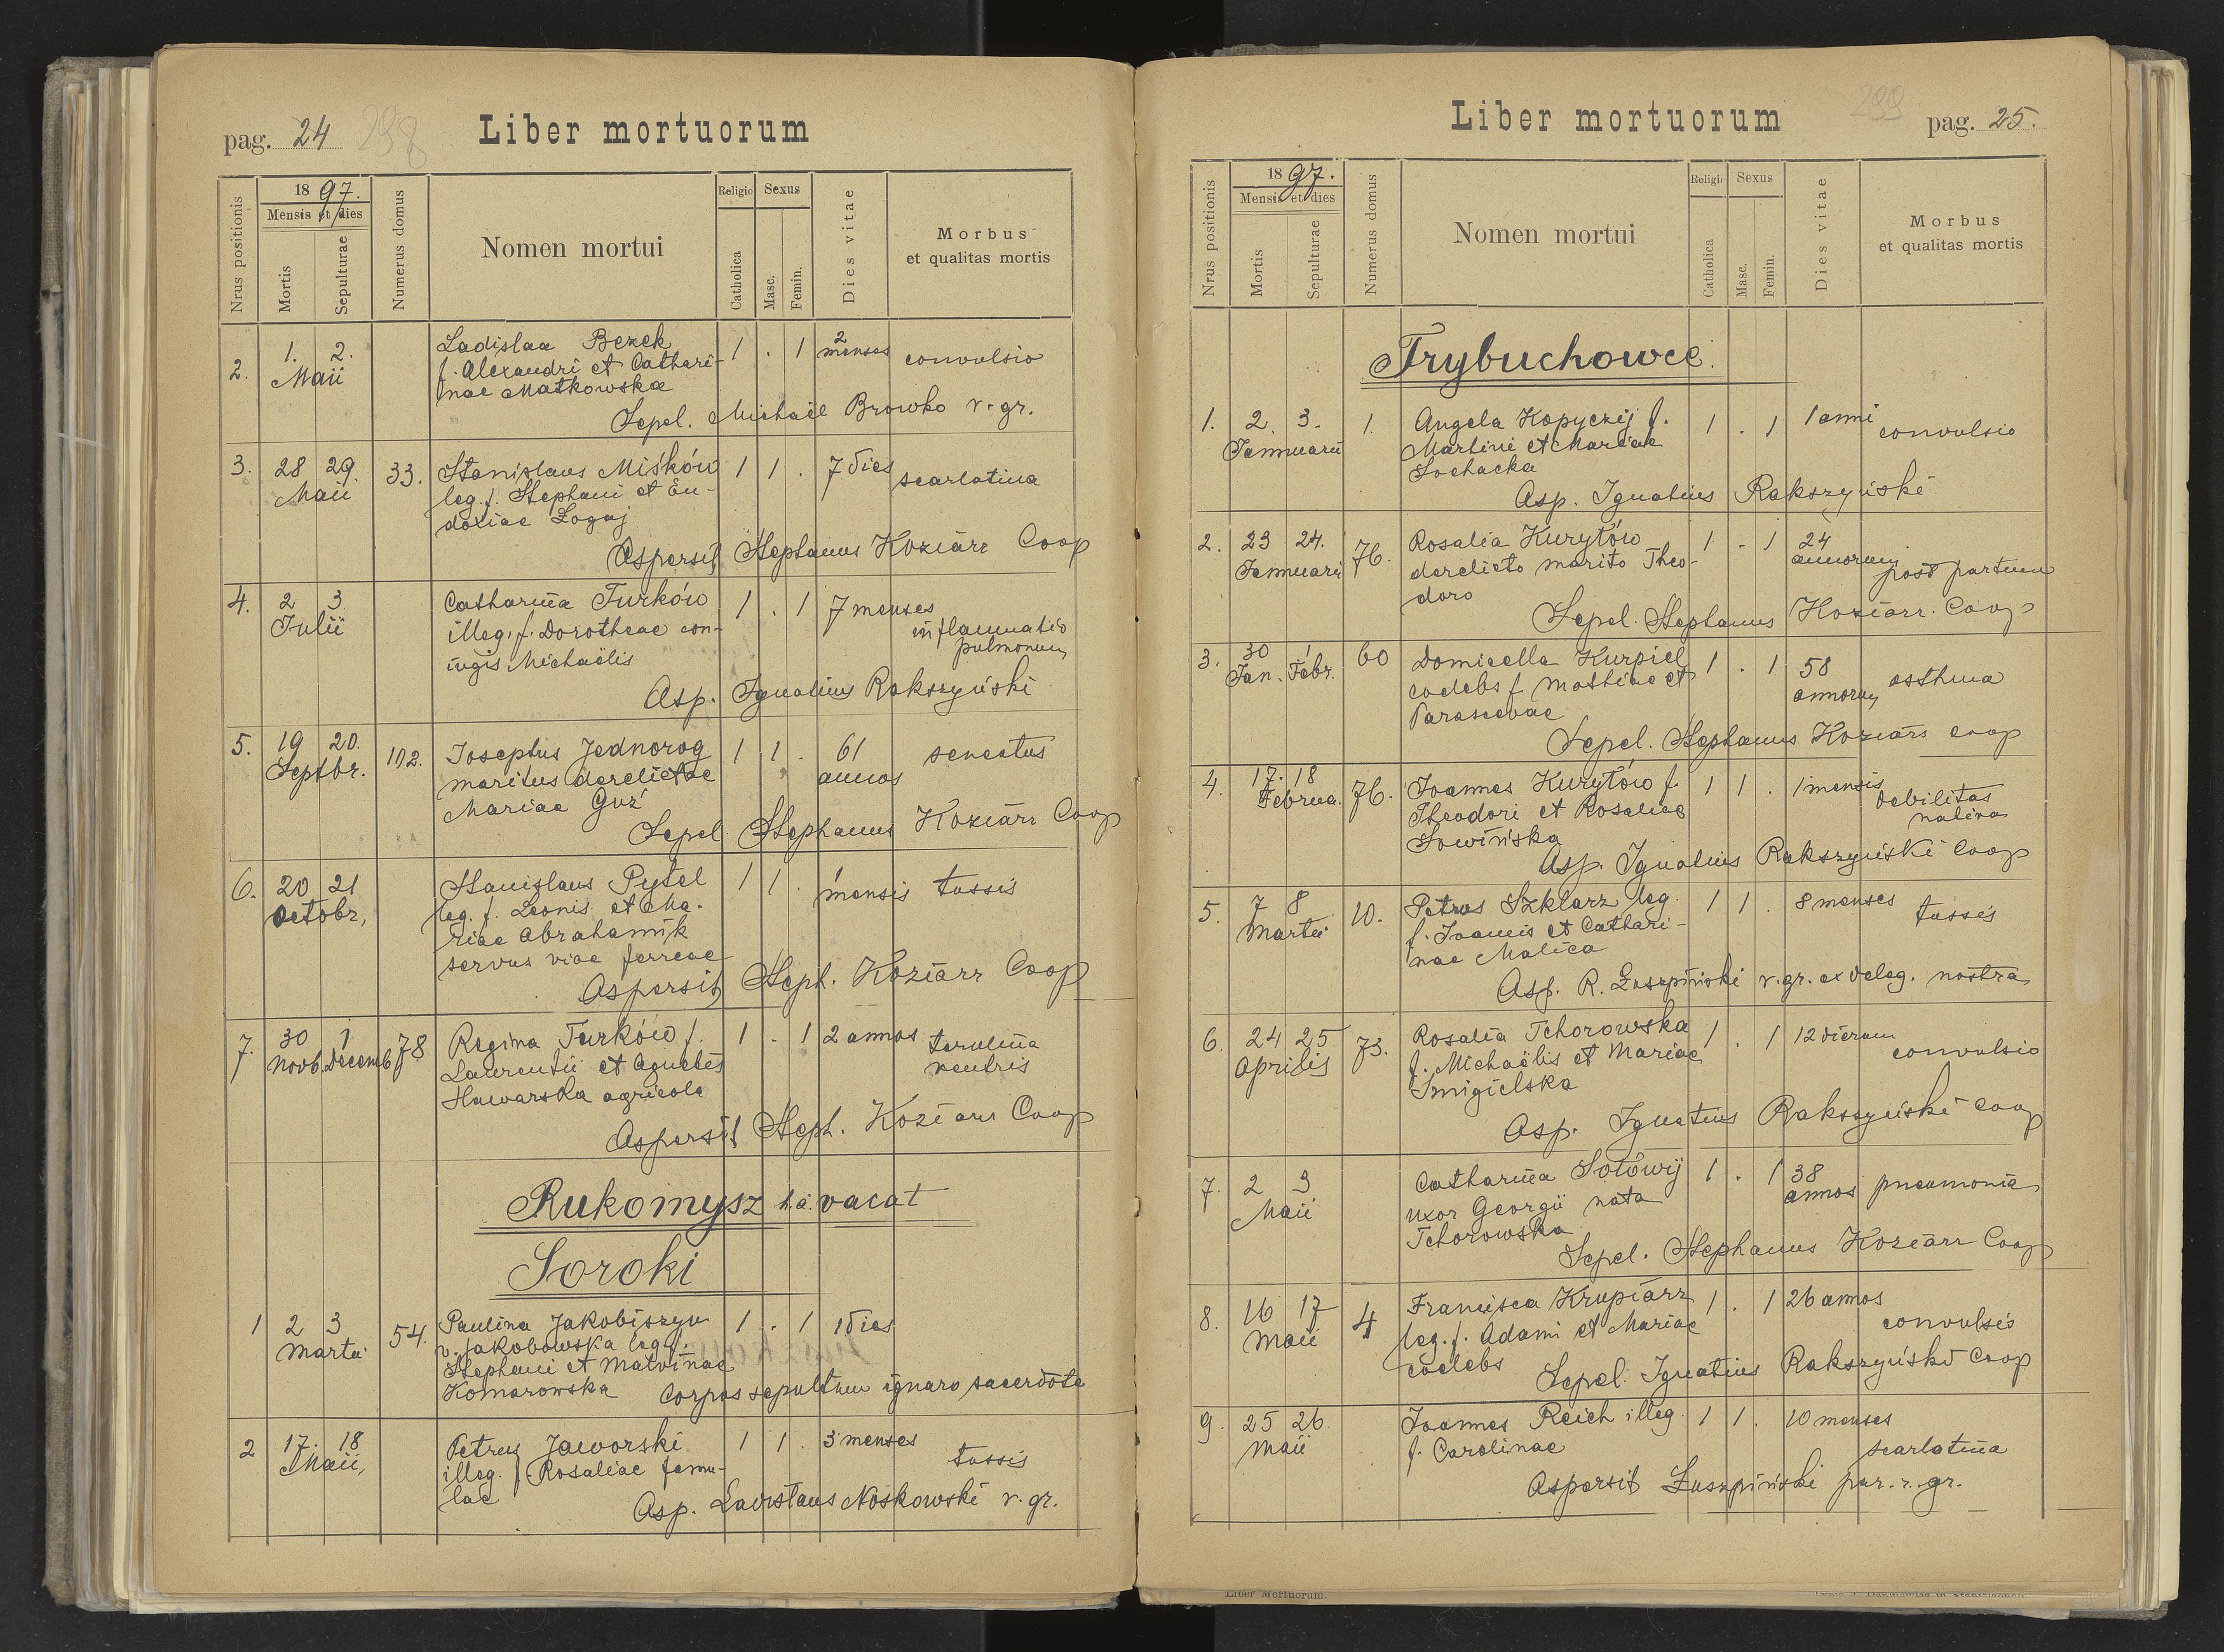 pag. 24 298 Liber mortuorum
Nrus positionis
1897.
Mensis et dies
Mortis
Sepulturae
Numerus domus
Nomen mortui
Religio
Catholica
Sexus
Masc.
Femin.
Dies vitae
Morbus
et qualitas mortis
2. 1. 2. Maii Ladislaa Bezek 1 . 1 2 menses convulsio
f. Alexandri et Cathari-
nae Matkowska
Sepel. Michaël Browko r. gr.
3. 28 29. Maii 33. Stanislaus Miśków 1 1 . 7 dies scarlatina
leg. f. Stephani et Eu-
doxiae Łogaj
Aspersit Stephanus Koziarz Coop
4. 2 3 Julii Catharina Turków 1 . 1 7 menses inflammatio pulmonum
illeg. f. Dorotheae con-
iugis Michaëlis
Asp. Ignatius Rakszyński
5. 19 20. Septbr. 102. Josephus Jednorog 1 1 . 61 annos senectus
maritus derelictae
Mariae Guź
Sepel. Stephanus Koziarz Coop
6. 20 21 Octobr, Stanislaus Pytel 1 1 . 1 mensis tussis
leg. f. Leonis et Ma-
riae Abrahamik
servus viae ferreae
Aspersit Steph. Koziarz Coop
7. 30 Novb. 1 Decemb 78 Regina Turków f. 1 . 1 2 annos
Laurentii et Agnetis ventris
Huwarska agricola
Aspersit Steph. Koziarz Coop
Rukomysz h.a. vacat
Soroki
1 2 3 Martii 54. Paulina Jakobiszyn 1 . 1 1 dies
v. Jakobowska leg f.
Stephani et Malvinae
Komarowska Corpus sepultum ignaro sacerdote
2 17. 18 Maii, Petrus Jaworski 1 1 . 3 menses tussis
illeg. f Rosaliae famu-
lae
Asp. Ladislaus Noskowski r. gr.
Liber mortuorum 299 pag. 25.
Nrus positionis
1897.
Mensis et dies
Mortis
Sepulturae
Numerus domus
Nomen mortui
Religio
Catholica
Sexus
Masc.
Femin.
Dies vitae
Morbus
et qualitas mortis
Trybuchowce.
1. 2. 3. Januarii 1. Angela Kopyczij f. 1 . 1 1 anni convulsio
Martini et Mariae
Sochacka
Asp. Ignatius Rakszyński
2. 23 24. Januarii 76. Rosalia Kurytów 1 . 1 24 annorum post partum
derelicto marito Theo-
doro
Sepel. Stephanus Koziarz. Coop
3. 30 Jan. 1 Febr. 60 Domicella Kurpiel 1 . 1 58 annorum asthma
coelebs f Mathiae et
Parascevae
Sepel. Stephanus Koziarz coop
4. 17. 18 Februa. 76. Joannes Kurytów f. 1 1 . 1 mensis debilitas nativa
Theodori et Rosaliae
Sowińska
Asp. Ignatius Rakszyński Coop
5. 7 8 Martii 10. Petrus Szklarz leg. 1 1 . 8 menses tussis
f. Joannis et Cathari-
nae Malica
Asp. R. Łuszpiński r. gr. ex deleg. nostra
6. 24 25 Aprilis 73. Rosalia Tchorowska 1 . 1 12 dierum convulsio
f. Michaëlis et Mariae
Smigielska
Asp. Ignatius Rakszyński coop
7. 2 3 Maii Catharina Sołówij 1 . 1 38 annos pneumonia
uxor Georgii nata
Tchorowska
Sepel. Stephanus Koziarz Coop
8. 16 17 Maii 4 Francisca Krupiarz 1 . 1 26 annos convulsis
leg. f. Adami et Mariae
coelebs Sepel. Ignatius Rakszyński Coop
9. 25 26 Maii Joannes Reich illeg. 1 1 . 10 menses scarlatina
f. Carolinae
Aspersit Łuszpiński par. r. gr.
Liber Mortuorum.